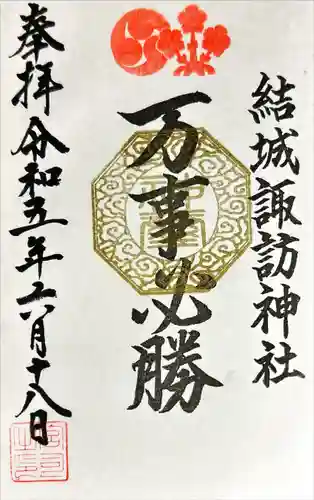 結城諏訪神社
万事必勝
奉拝令和五年六月十八日